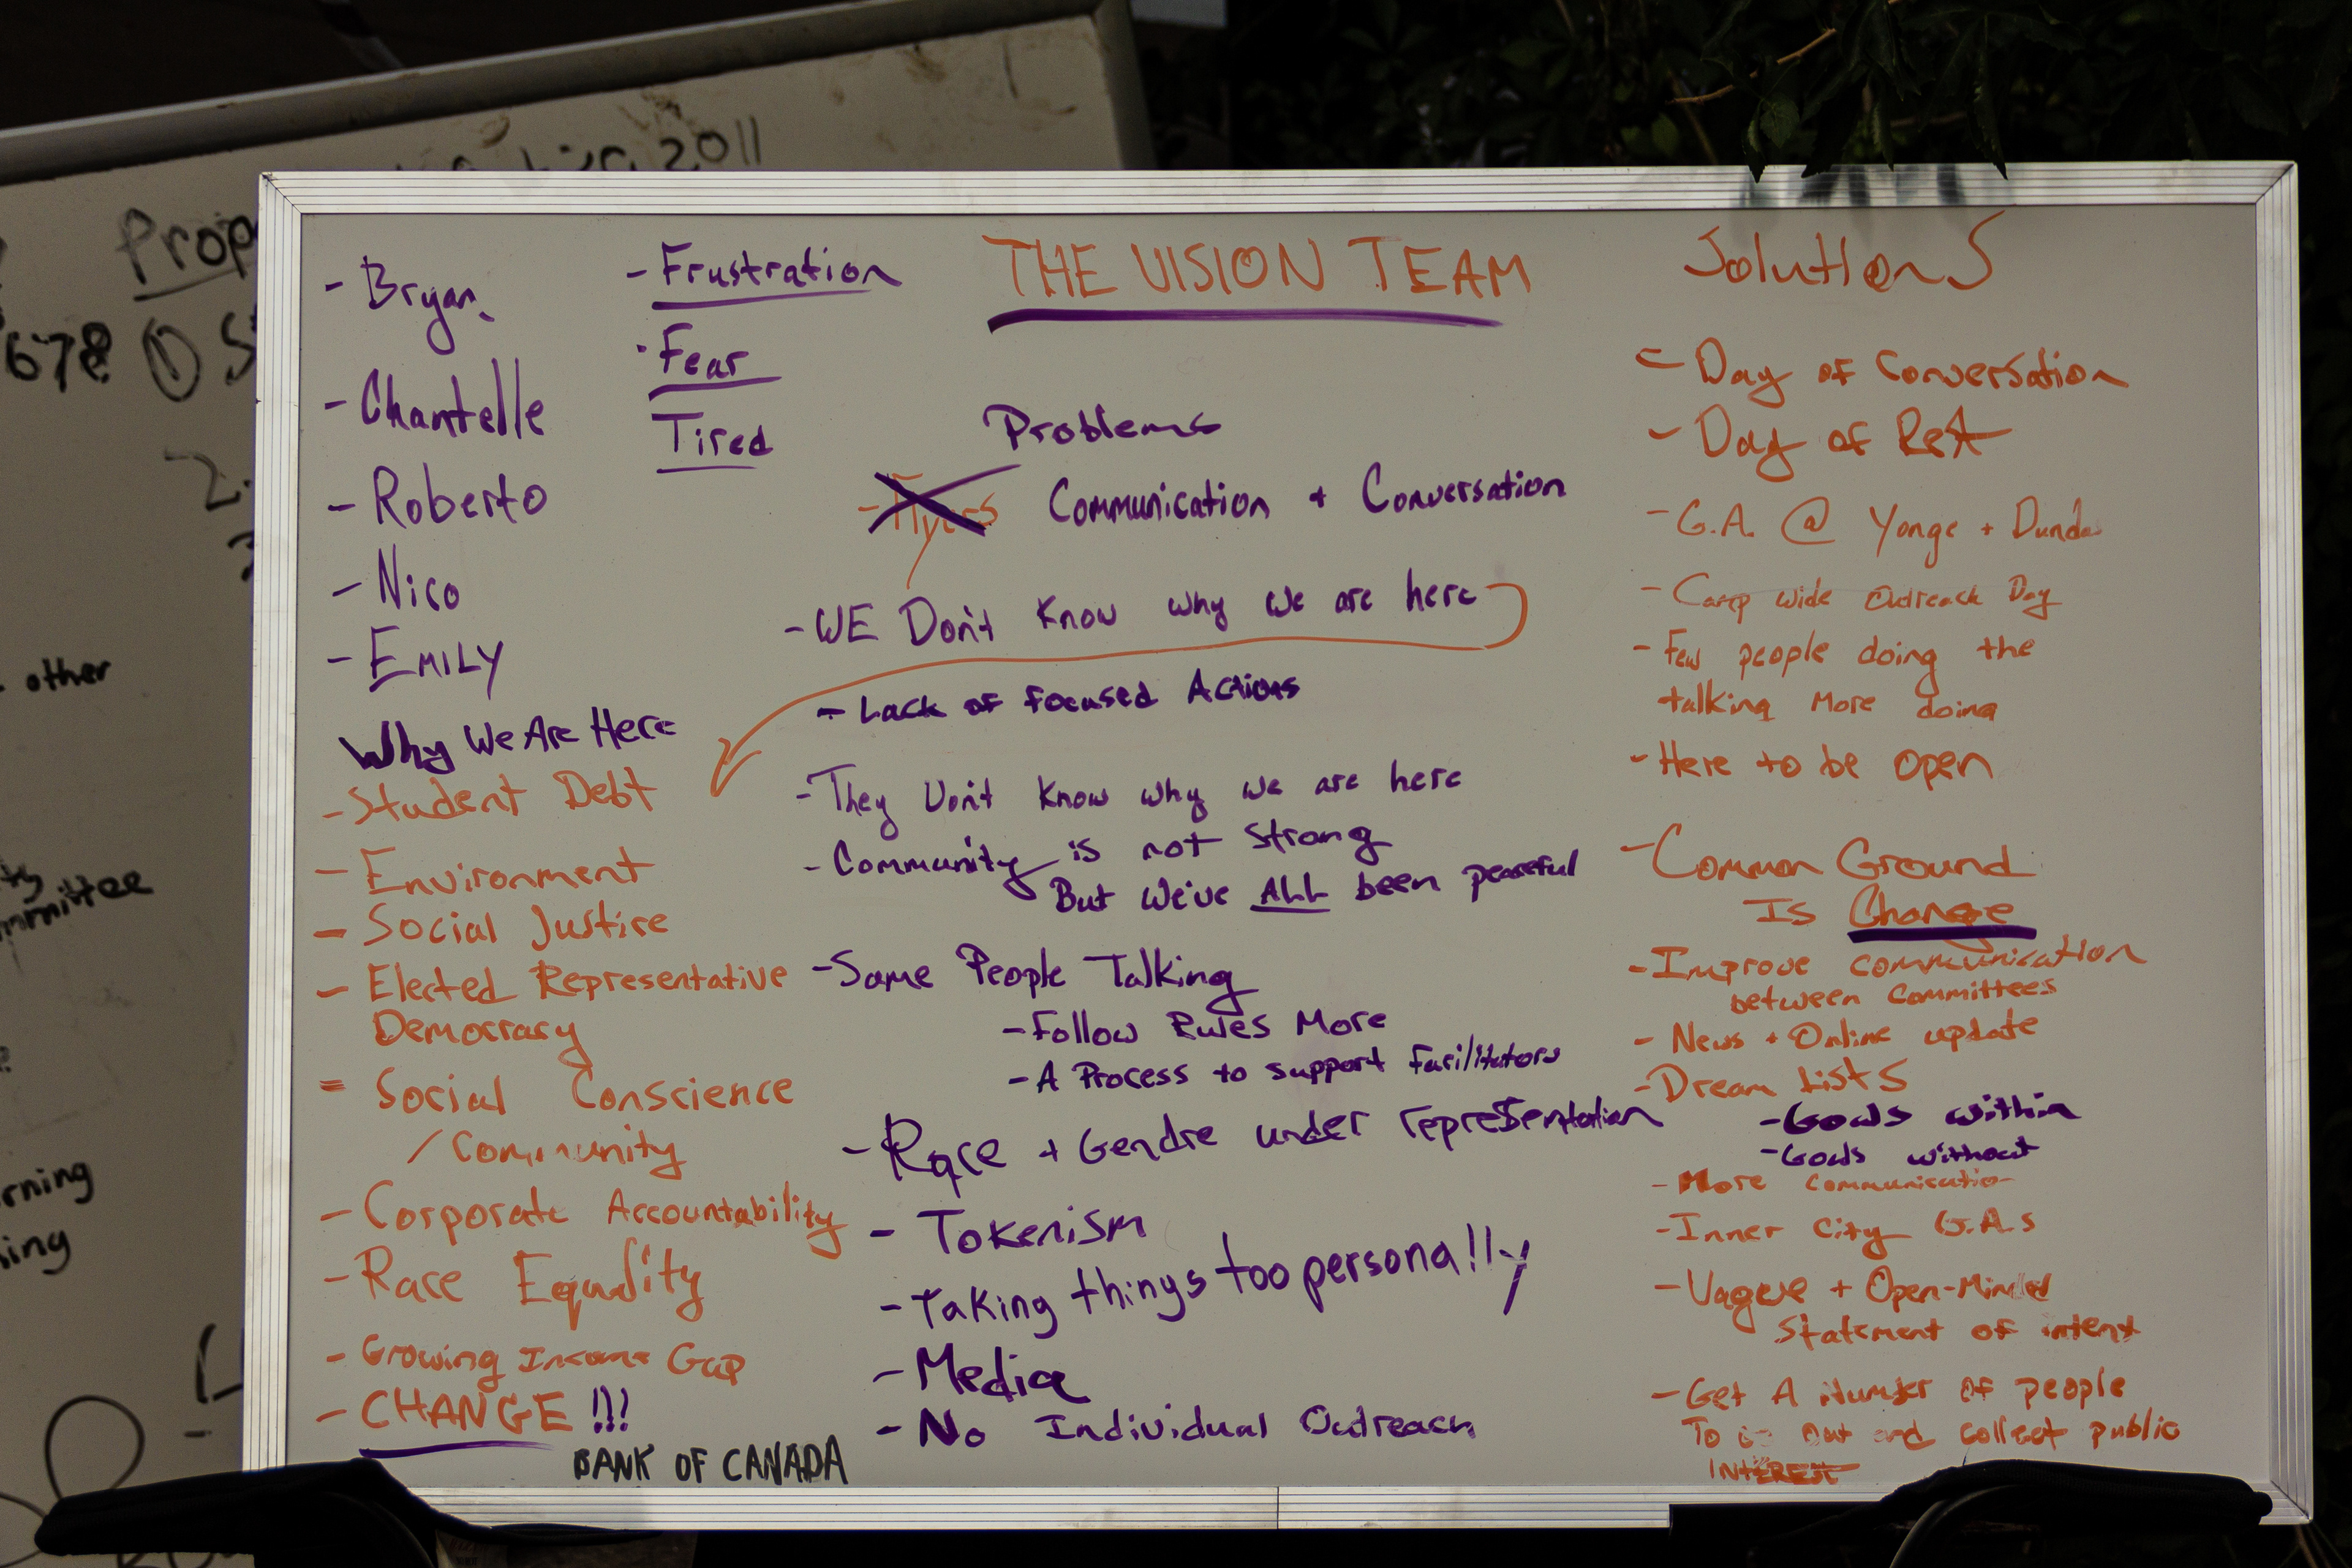 2011
Prop
678 ① S
2.
3
other
mmittee
rning
ing
THE VISION TEAM
- Bryan
- Chantelle
- Roberto
- Nico
- EMILY
- Frustration
- Fear
Tired
Why We Are Here
- Student Debt
- Environment
- Social Justice
- Elected Representative
Democracy
- Social Conscience
/ Community
- Corporate Accountability
- Race Equality
- Growing Income Gap
- CHANGE !!!
BANK OF CANADA
Problems
- Flyers Communication + Conversation
- WE Don't Know why we are here
- Lack of focused Actions
- They Don't Know why we are here
- Community is not strong
But we've ALL been peaceful
- Same People Talking
- Follow Rules More
- A Process to support facilitators
- Race + Gendre under representation
- Tokenism
- Taking things too personally
- Media
- No Individual Outreach
Solutions
- Day of Conversation
- Day of Rest
- G.A. @ Yonge + Dundas
- Camp wide Outreach Day
- Few people doing the
talking More doing
- Here to be open
- Common Ground
Is Change
- Improve communication
between Committees
- News + Online update
- Dream Lists
- Goals within
- Goals without
- More communication
- Inner City G.A.s
- Vague + Open-Minded
Statement of intent
- Get A Number of people
To go out and collect public
INTEREST